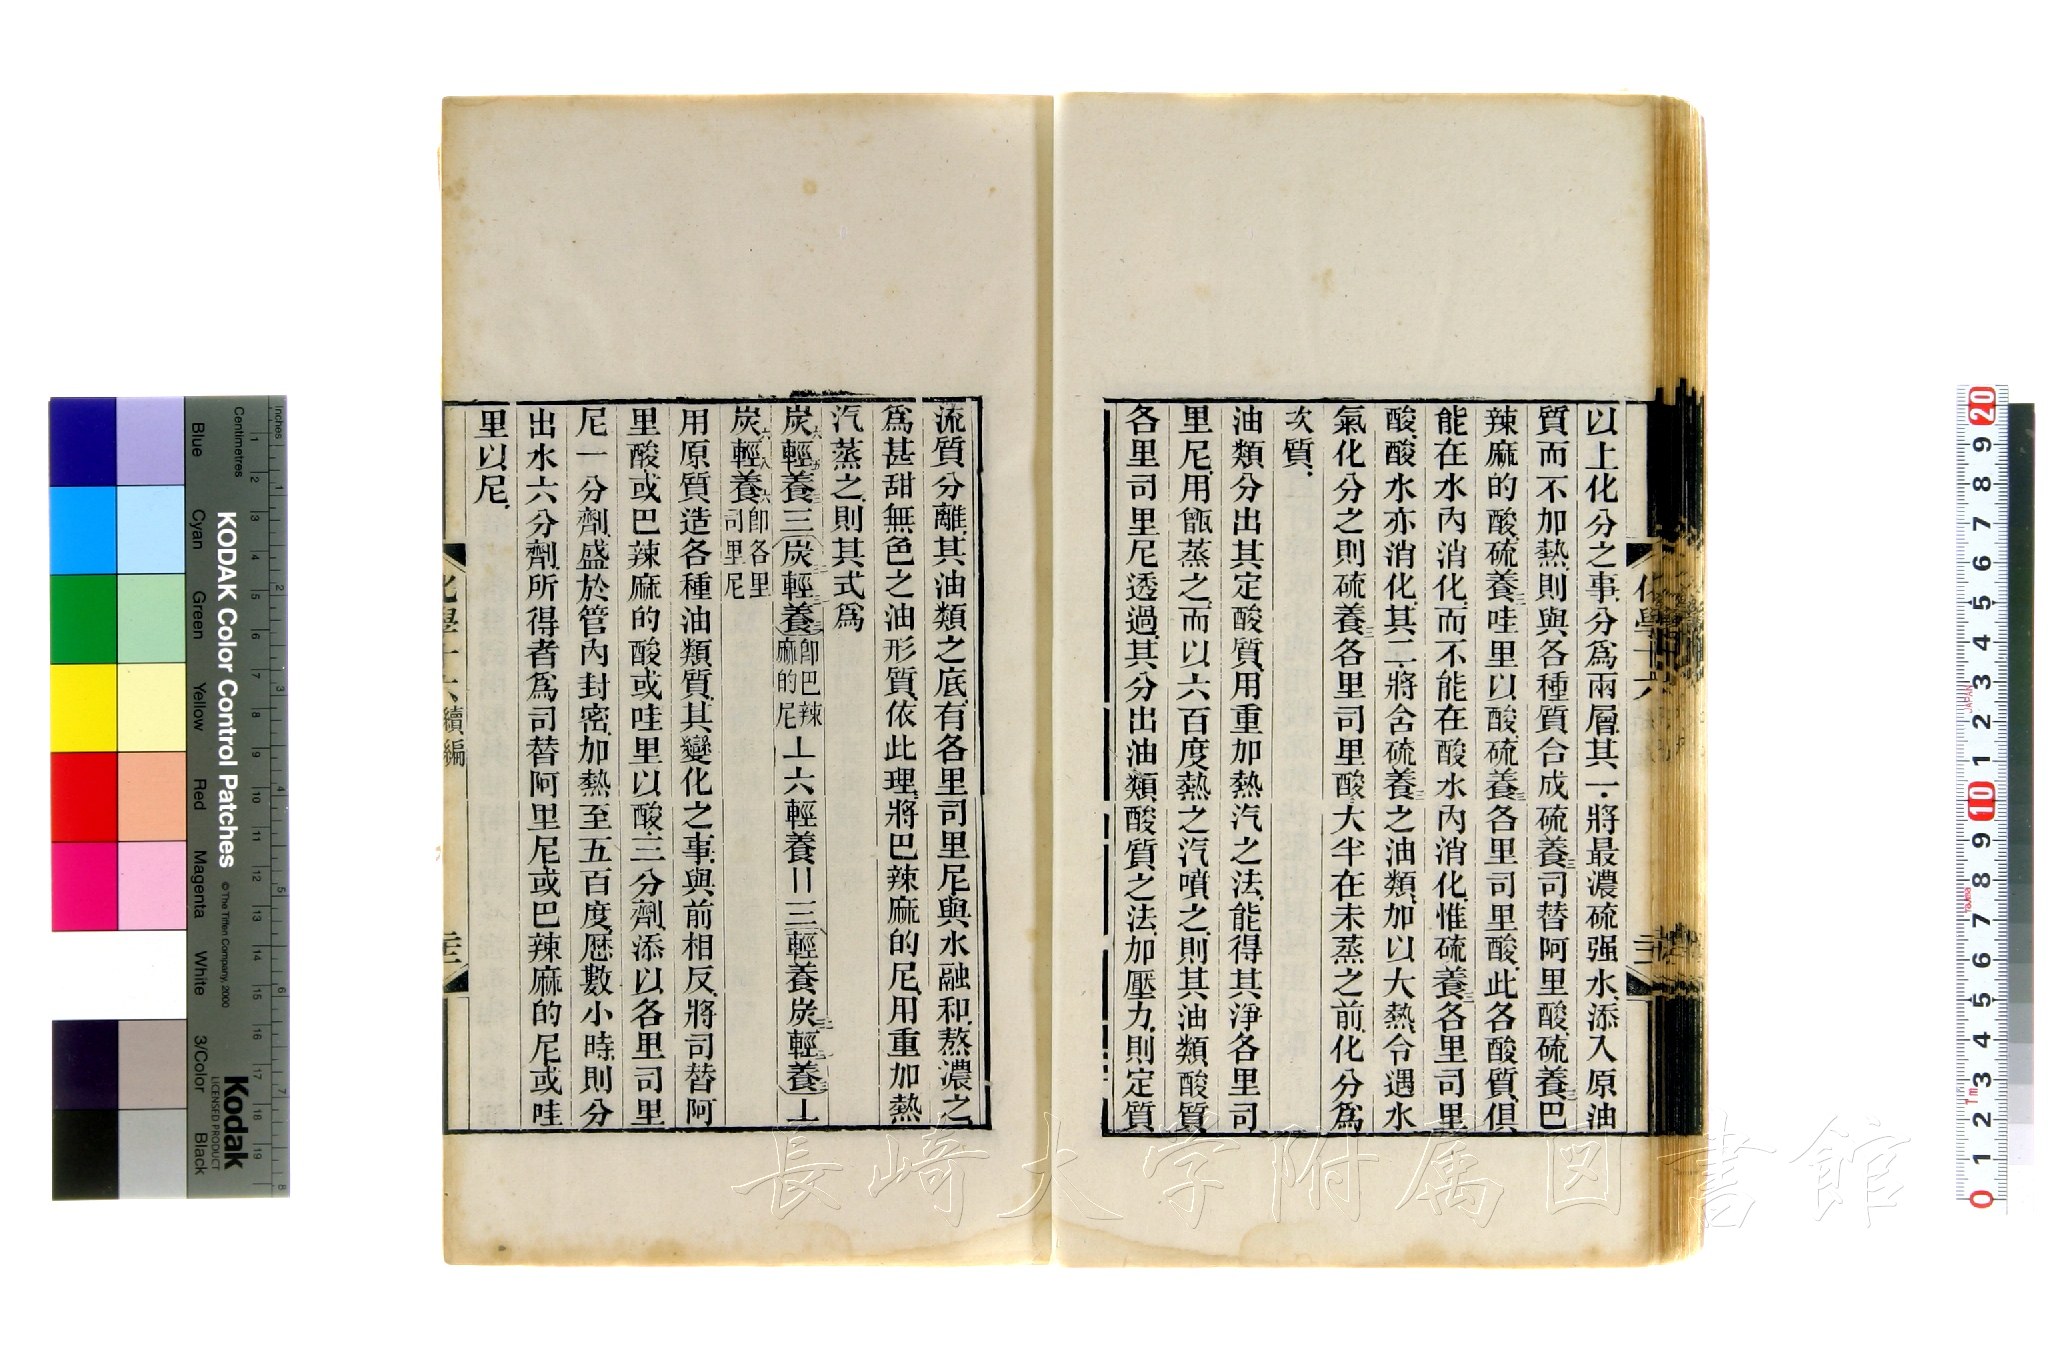 以上化分之事、分爲兩層、其一、將最濃硫强水、添入原油
質而不加熱、則與各種質合成硫養三司替阿里酸、硫養三巴
辣麻的酸、硫養三哇里以酸、硫養三各里司里酸、此各酸質、俱
能在水內消化、而不能在酸水內消化、惟硫養三各里司里
酸、酸水亦消化、其二、將含硫養三之油類、加以大熱、令遇水
氣化分之、則硫養三各里司里酸、大半在未蒸之前、化分爲
次質、
油類分出其定酸質、用重加熱汽之法、能得其淨各里司
里尼、用甑蒸之、而以六百度熱之汽噴之、則其油類酸質、
各里司里尼透過、其分出油類酸質之法、加壓力、則定質
化學十六
流質分離、其油類之底、有各里司里尼、與水融和、熬濃之、
爲甚甜無色之油形質、依此理、將巴辣麻的尼、用重加熱
汽蒸之、則其式爲
炭六輕五養三三炭輕養卽巴辣麻的尼⊥六輕養=三輕養炭輕養⊥
炭六輕八養六卽各里司里尼
用原質造各種油類質、其變化之事、與前相反、將司替阿
里酸或巴辣麻的酸或哇里以酸、三分劑、添以各里司里
尼一分劑、盛於管內封密、加熱至五百度、歷數小時、則分
出水六分劑、所得者爲司替阿里尼或巴辣麻的尼或哇
里以尼、
化學十六續編
KODAK Color Control Patches
© The Tiffen Company, 2000
Kodak
LICENSED PRODUCT
Inches
Centimetres
Blue
Cyan
Green
Yellow
Red
Magenta
White
3/Color
Black
長崎大学附属図書館